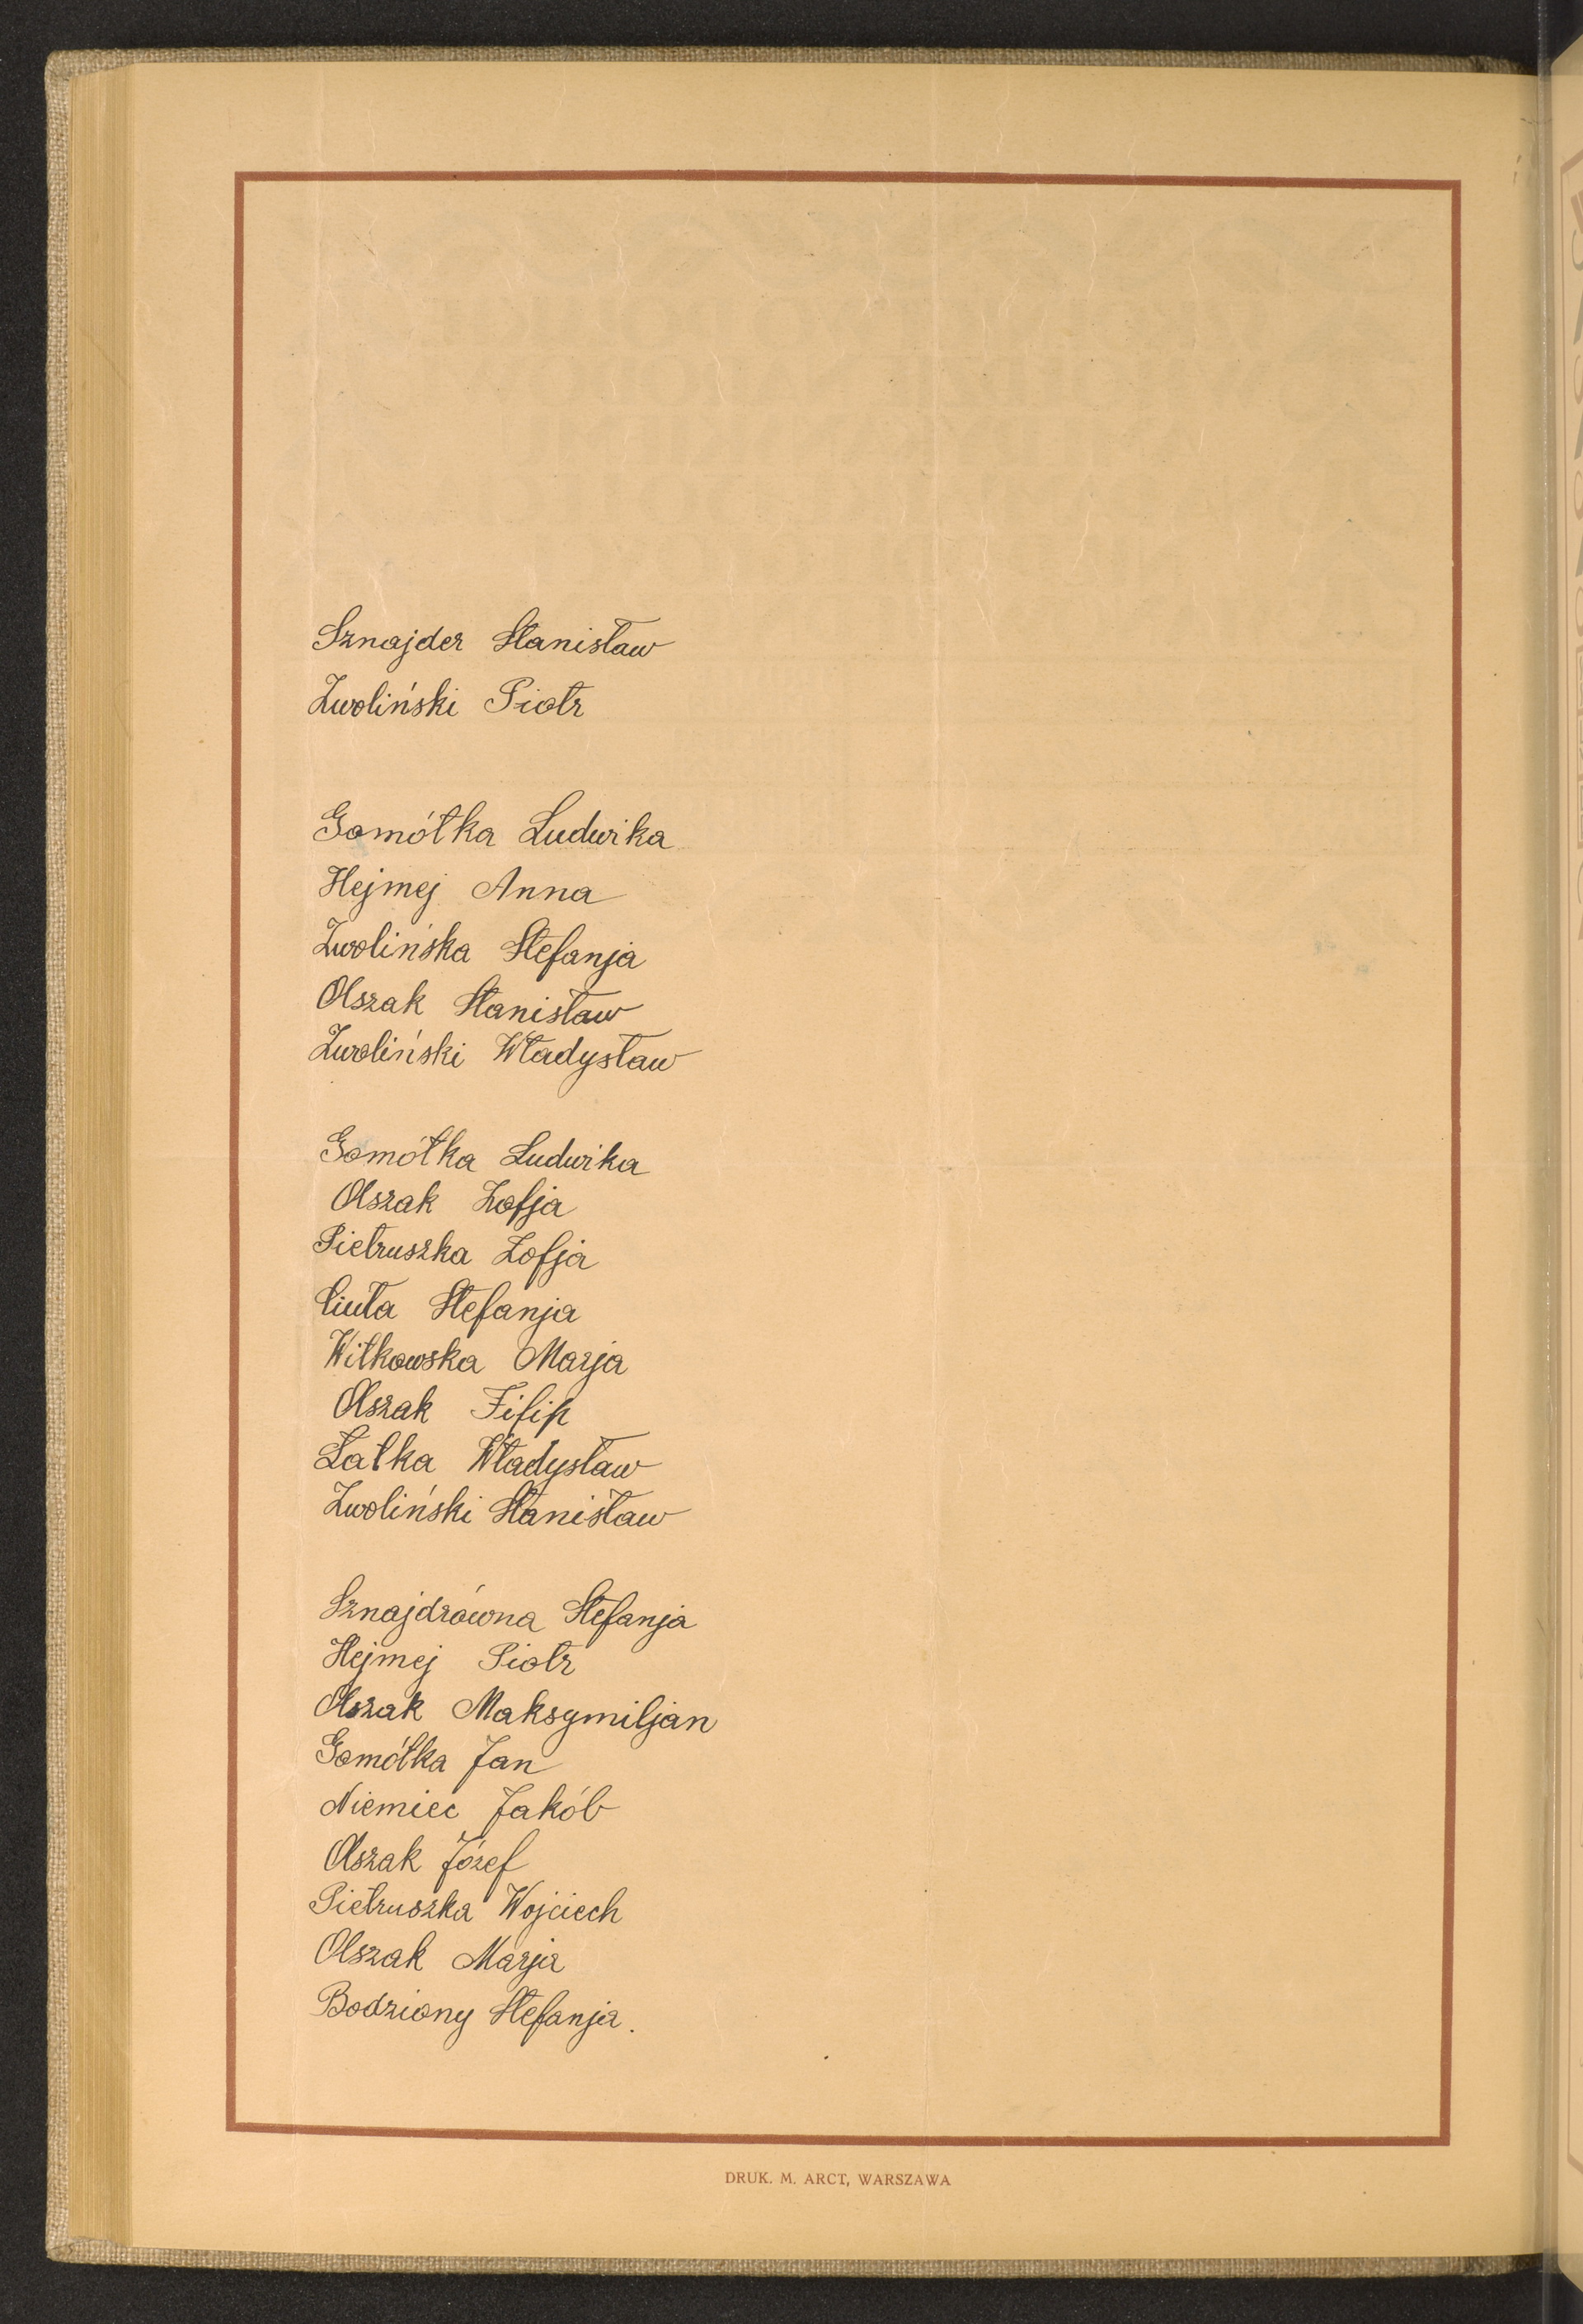 Sznajder Stanisław
Zwoliński Piotr
Gomółka Ludwika
Hejmej Anna
Zwolińska Stefanja
Olszak Stanisław
Zwoliński Władysław
Gomółka Ludwika
Olszak Zofja
Pietruszka Zofja
Ciuła Stefanja
Witkowska Marja
Olszak Filip
Łatka Władysław
Zwoliński Stanisław
Sznajdrówna Stefanja
Hejmej Piotr
Olszak Maksymiljan
Gomółka Jan
Niemiec Jakób
Olszak Józef
Pietruszka Wojciech
Olszak Marja
Bodziony Stefanja.
DRUK. M. ARCT, WARSZAWA